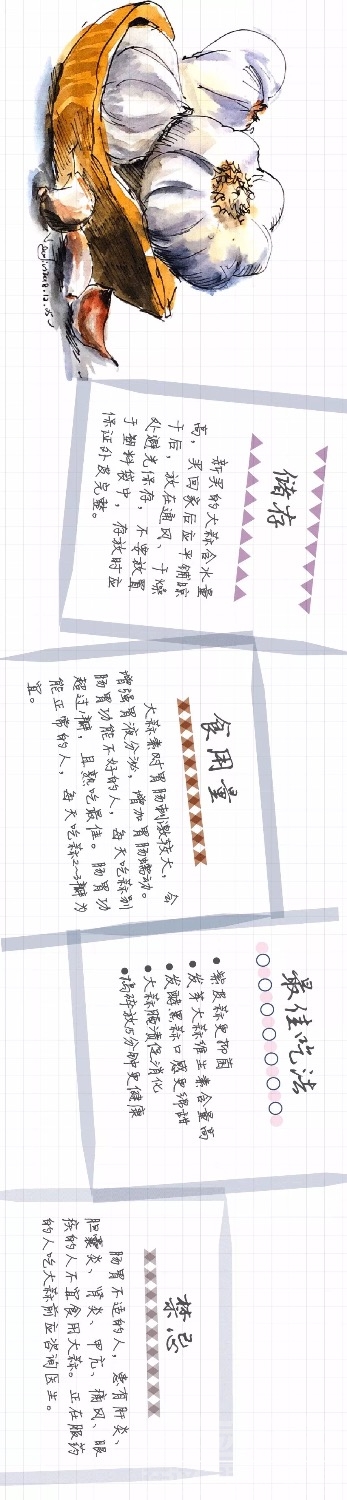 储存
新买的大蒜含水量
高，买回家后应平铺晾
干后，放在通风、干燥
处避光保存，不要放置
于塑料袋中，存放时应
保证外皮完整。
食用量
大蒜素对胃肠刺激较大，会
增强胃液分泌，增加胃肠蠕动。
肠胃功能不好的人，每天吃蒜别
超过1瓣，且熟吃最佳。肠胃功
能正常的人，每天吃蒜2~3瓣为
宜。
最佳吃法
•紫皮蒜更抑菌
•发芽大蒜维生素含量高
•发酵黑蒜口感更绵甜
•大蒜腌渍促消化
•捣碎放15分钟更健康
禁忌
肠胃不适的人，患有肝炎、
胆囊炎、肾炎、甲亢、痛风、眼
疾的人不宜食用大蒜。正在服药
的人吃大蒜前应咨询医生。